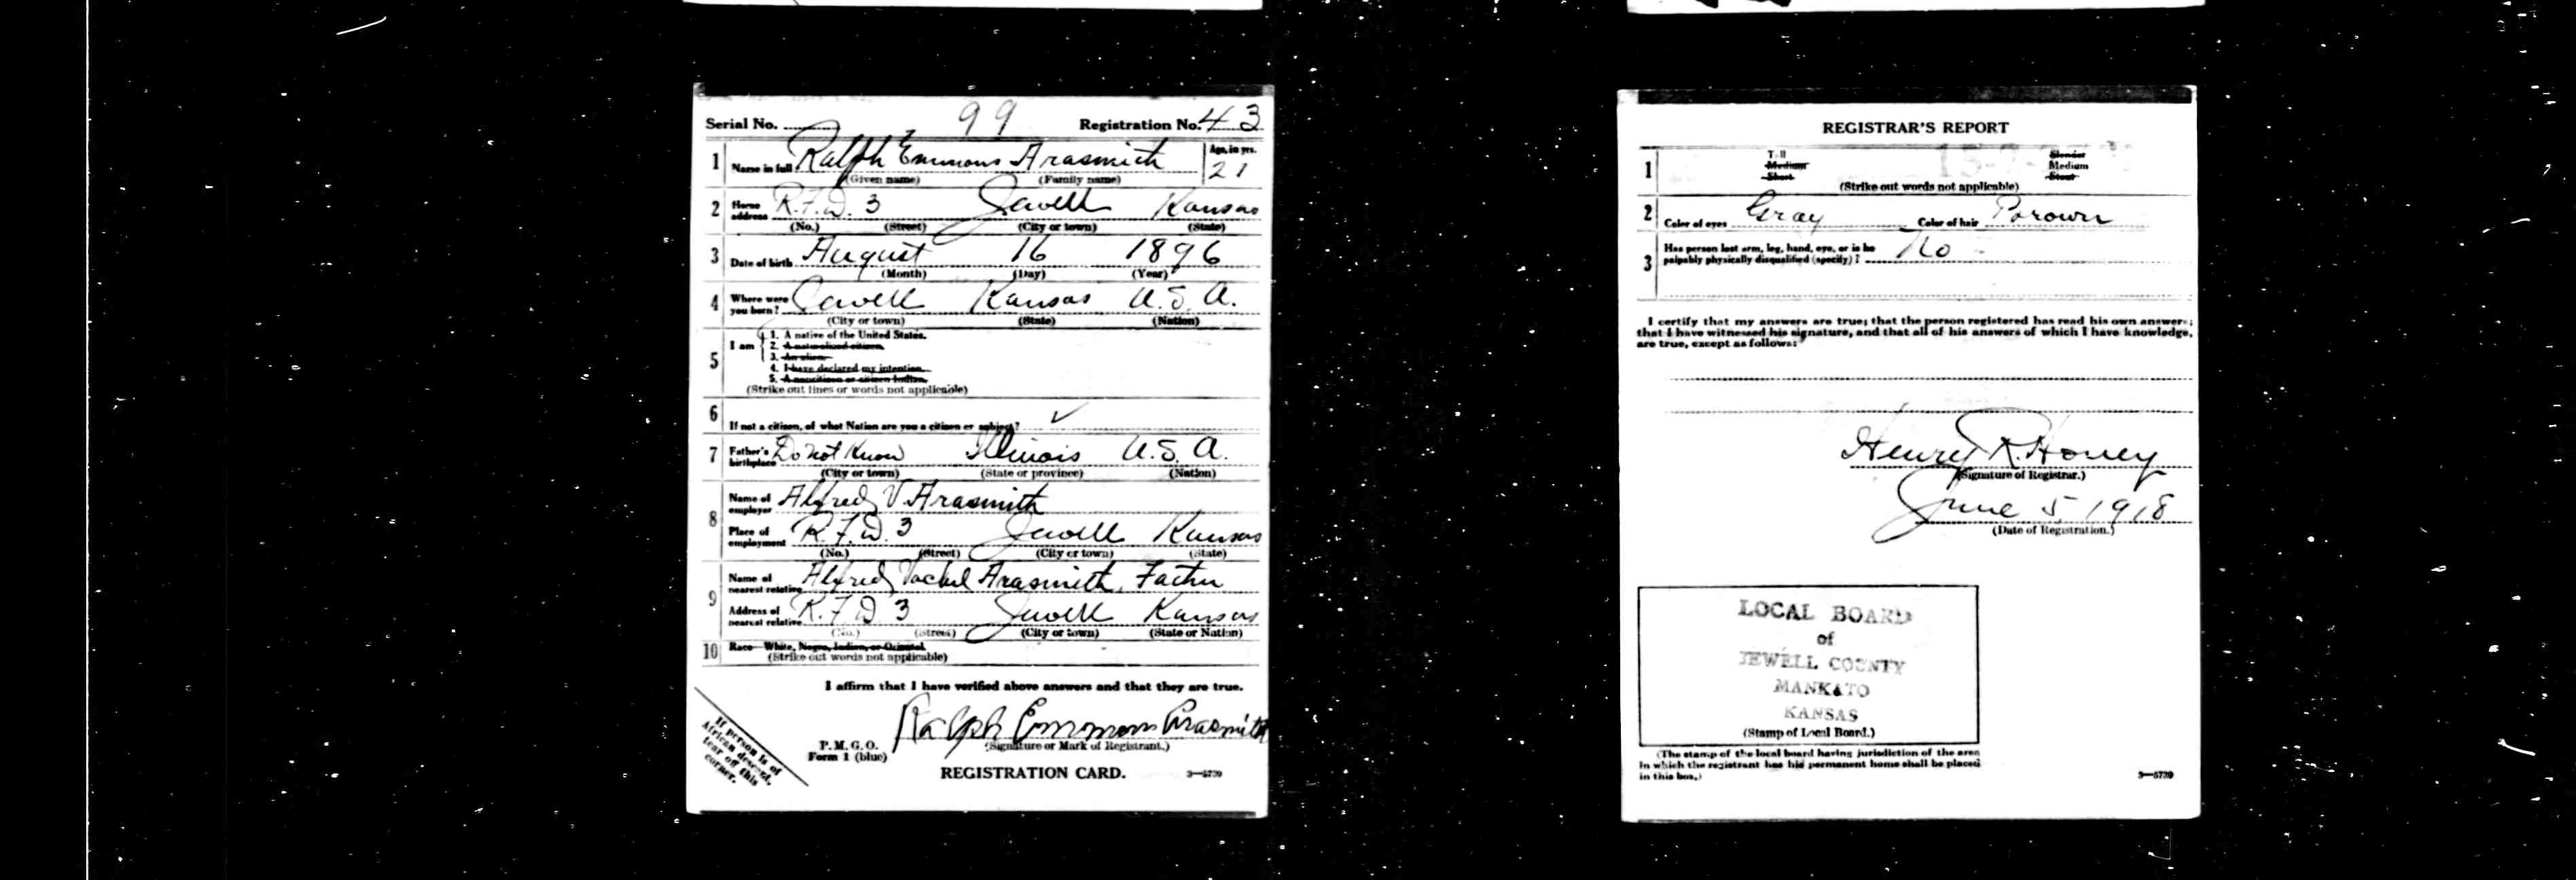 Serial No. 99 Registration No. 43
1 Name in full Ralph Emmons Arasmith Age, in yrs. 21
(Given name) (Family name)
2 Home address R.F.D. 3 Jewell Kansas
(No.) (Street) (City or town) (State)
3 Date of birth August 16 1896
(Month) (Day) (Year)
4 Where were you born? Jewell Kansas U.S.A.
(City or town) (State) (Nation)
5 I am
1. A native of the United States.
2. A naturalized citizen.
3. An alien.
4. I have declared my intention.
5. A noncitizen or citizen Indian.
(Strike out lines or words not applicable)
6 If not a citizen, of what Nation are you a citizen or subject? ✓
7 Father's birthplace Do not Know Illinois U.S.A.
(City or town) (State or province) (Nation)
8 Name of employer Alfred V. Arasmith
Place of employment R.F.D. 3 Jewell Kansas
(No.) (Street) (City or town) (State)
9 Name of nearest relative Alfred Vachel Arasmith, Father
Address of nearest relative R.F.D 3 Jewell Kansas
(No.) (Street) (City or town) (State or Nation)
10 Race—White, Negro, Indian, or Oriental
(Strike out words not applicable)
I affirm that I have verified above answers and that they are true.
Ralph Emmons Arasmith
(Signature or Mark of Registrant.)
P. M. G. O.
Form 1 (blue)
REGISTRATION CARD. 3—5729
If person is of
African descent,
tear off this
corner.
REGISTRAR'S REPORT
1 Tall Slender
Medium Medium
Short Stout
(Strike out words not applicable)
2 Color of eyes Gray Color of hair Brown
3 Has person lost arm, leg, hand, eye, or is he
palpably physically disqualified (specify)? No
I certify that my answers are true; that the person registered has read his own answers;
that I have witnessed his signature, and that all of his answers of which I have knowledge,
are true, except as follows:
Henry R. Honey
(Signature of Registrar.)
June 5, 1918
(Date of Registration.)
LOCAL BOARD
of
JEWELL COUNTY
MANKATO
KANSAS
(Stamp of Local Board.)
(The stamp of the local board having jurisdiction of the area
in which the registrant has his permanent home shall be placed
in this box.)
3—5729